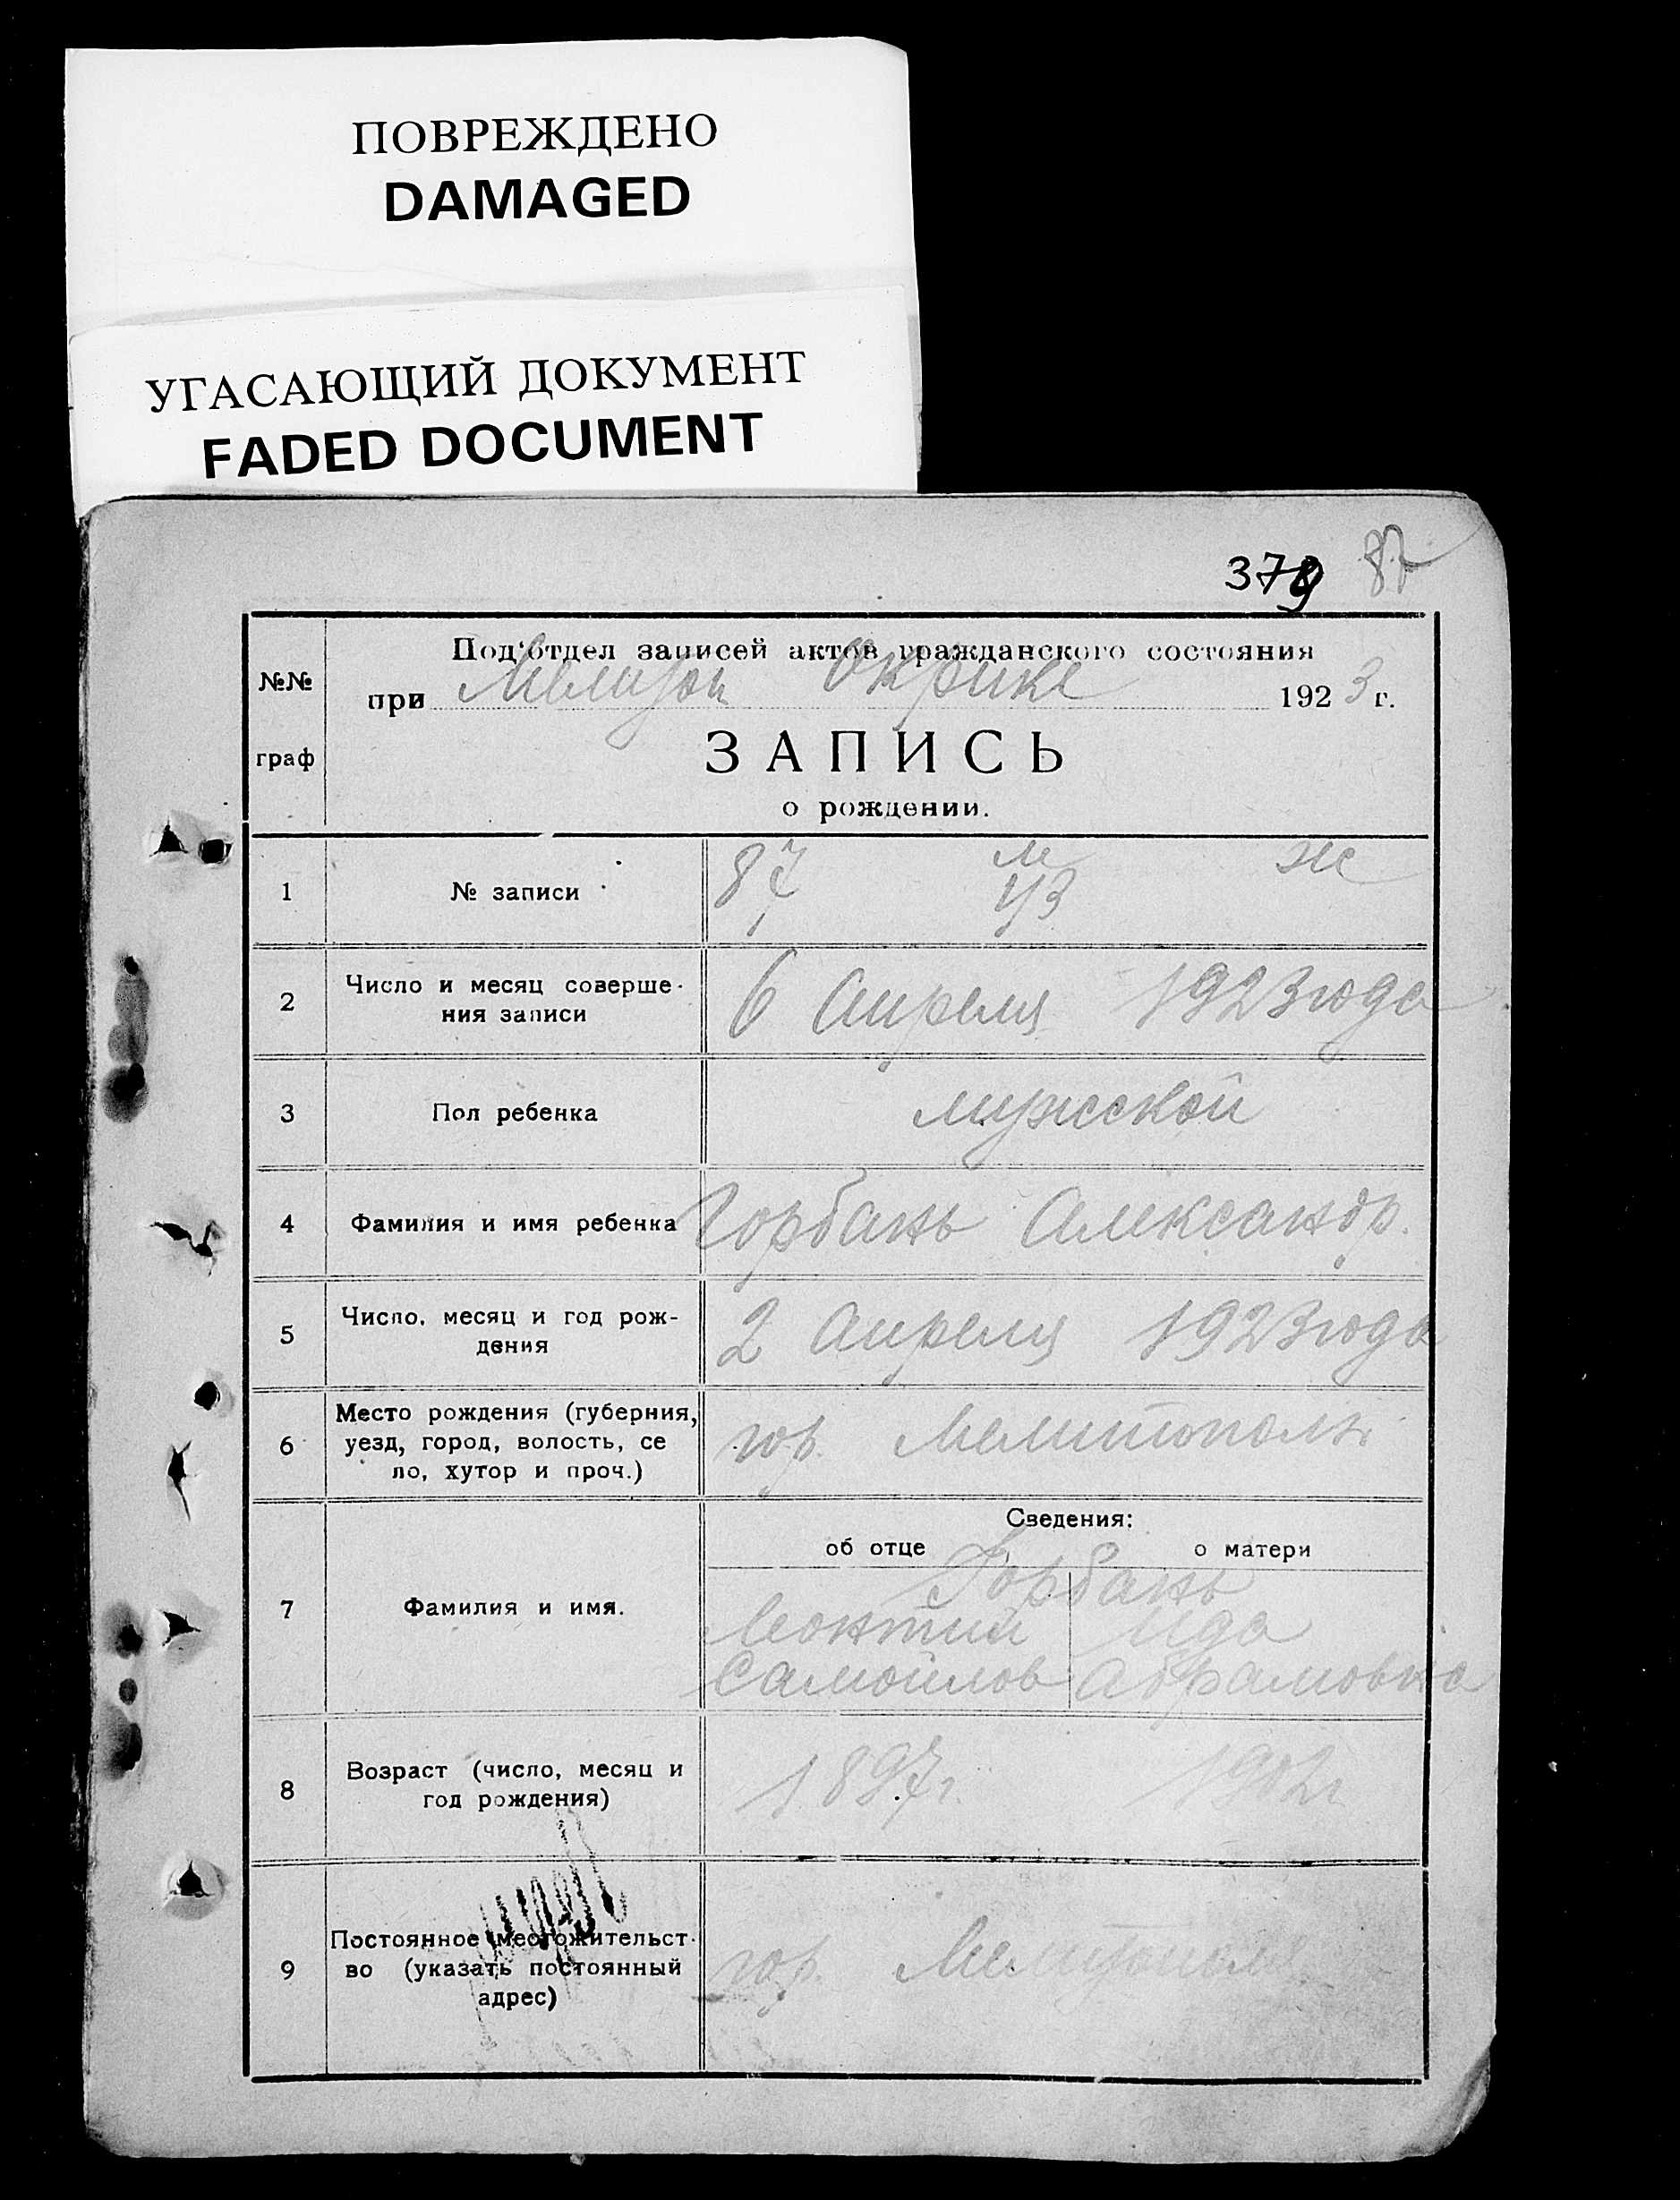 ПОВРЕЖДЕНО
DAMAGED
УГАСАЮЩИЙ ДОКУМЕНТ
FADED DOCUMENT
379 87
№№ граф
Под'отдел записей актов гражданского состояния
при Мелитоп Окрике 1923 г.
ЗАПИСЬ
о рождении.
1 № записи 87 м 43 ж
2 Число и месяц соверше-
ния записи 6 Апреля 1923 года
3 Пол ребенка мужской
4 Фамилия и имя ребенка Горбань Александр.
5 Число, месяц и год рож-
дения 2 Апреля 1923 года
6 Место рождения (губерния,
уезд, город, волость, се
ло, хутор и проч.) гор. Мелитополь
Сведения:
об отце о матери
7 Фамилия и имя. Горбань
Леонтий Ида
Самойлов Абрамовна
8 Возраст (число, месяц и
год рождения) 1897г. 1902г
9 Постоянное местожительст-
во (указать постоянный
адрес) гор. Мелитополь